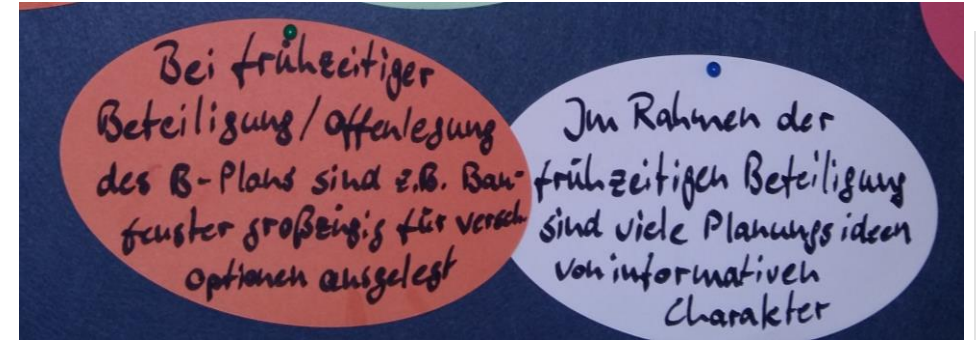 Bei frühzeitiger
Beteiligung/Offenlegung
des B-Plans sind z.B. Bau-
fenster großzügig für versch.
Optionen ausgelegt
Im Rahmen der
frühzeitigen Beteiligung
sind viele Planungsideen
von informativen
Charakter